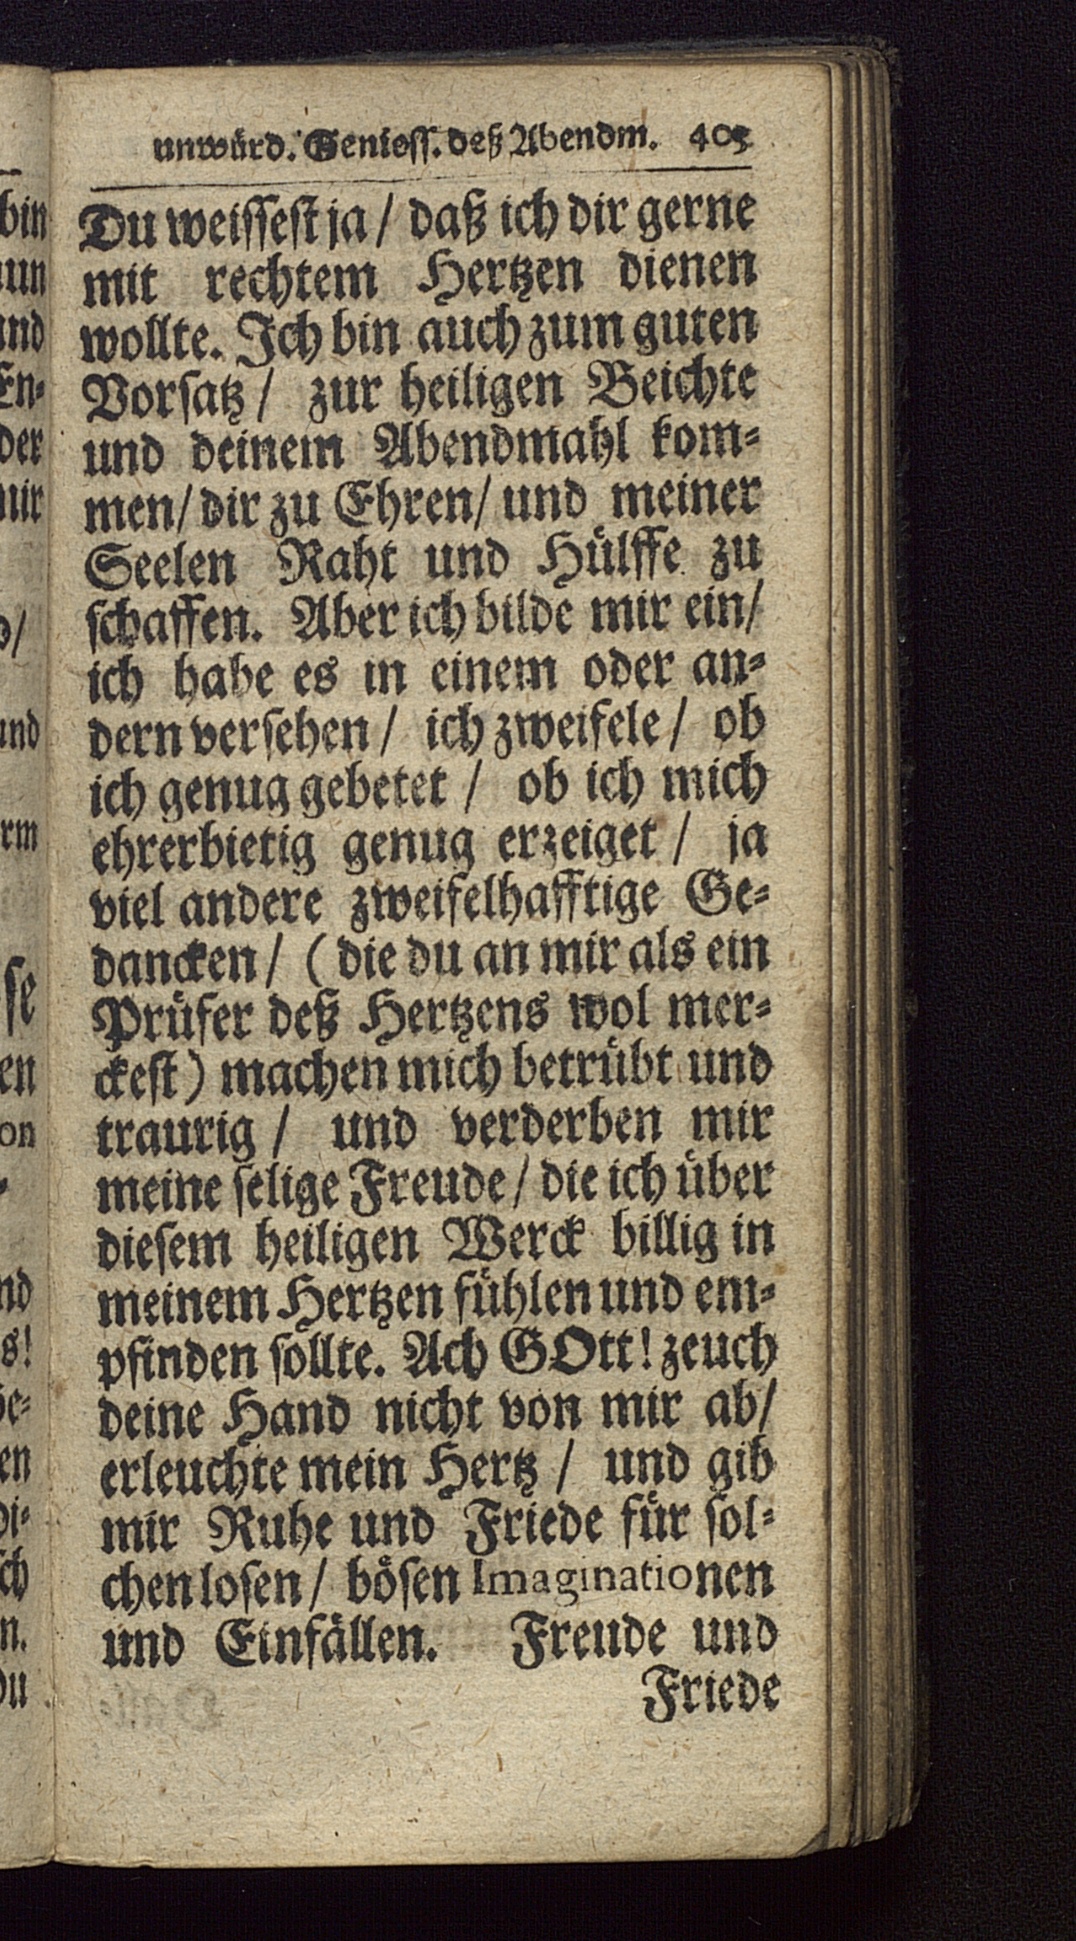 unwürd. Genioss. deß Abendm. 405
Du weissest ja / daß ich dir gerne
mit rechtem Hertzen dienen
wollte. Ich bin auch zum guten
Vorsatz / zur heiligen Beichte
und deinem Abendmahl kom-
men / dir zu Ehren / und meiner
Seelen Raht und Hülffe zu
schaffen. Aber ich bilde mir ein /
ich habe es in einem oder an-
dern versehen / ich zweifele / ob
ich genug gebetet / ob ich mich
ehrerbietig genug erzeiget / ja
viel andere zweifelhafftige Ge-
dancken / (die du an mir als ein
Prüfer deß Hertzens wol mer-
ckest) machen mich betrübt und
traurig / und verderben mir
meine selige Freude / die ich über
diesem heiligen Werck billig in
meinem Hertzen fühlen und em-
pfinden sollte. Ach GOtt! zeuch
deine Hand nicht von mir ab /
erleuchte mein Hertz / und gib
mir Ruhe und Friede für sol-
chen losen / bösen Imaginationen
und Einfällen. Freude und
Friede